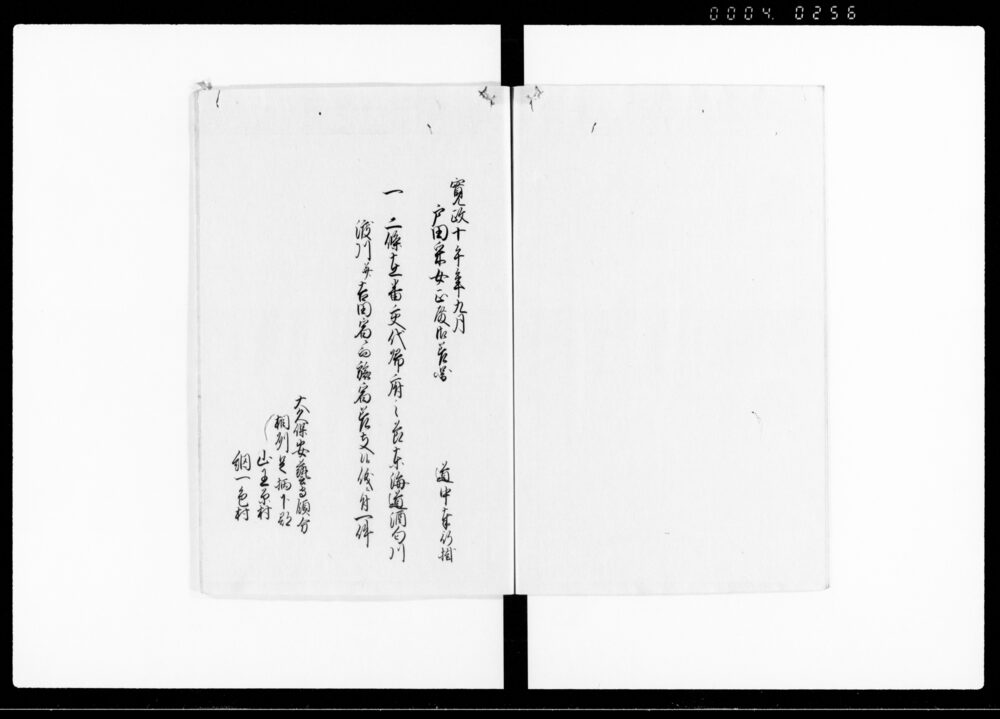 0004. 0256
寛政十午年九月
戸田采女正殿御差図
道中奉行掛
一 二條在番交代帰府之節東海道酒匂川
渡川并吉田宿ニ而臨宿差支候儀ニ付一件
大久保安藝守領分
相州足柄下郡
山王原村
網一色村